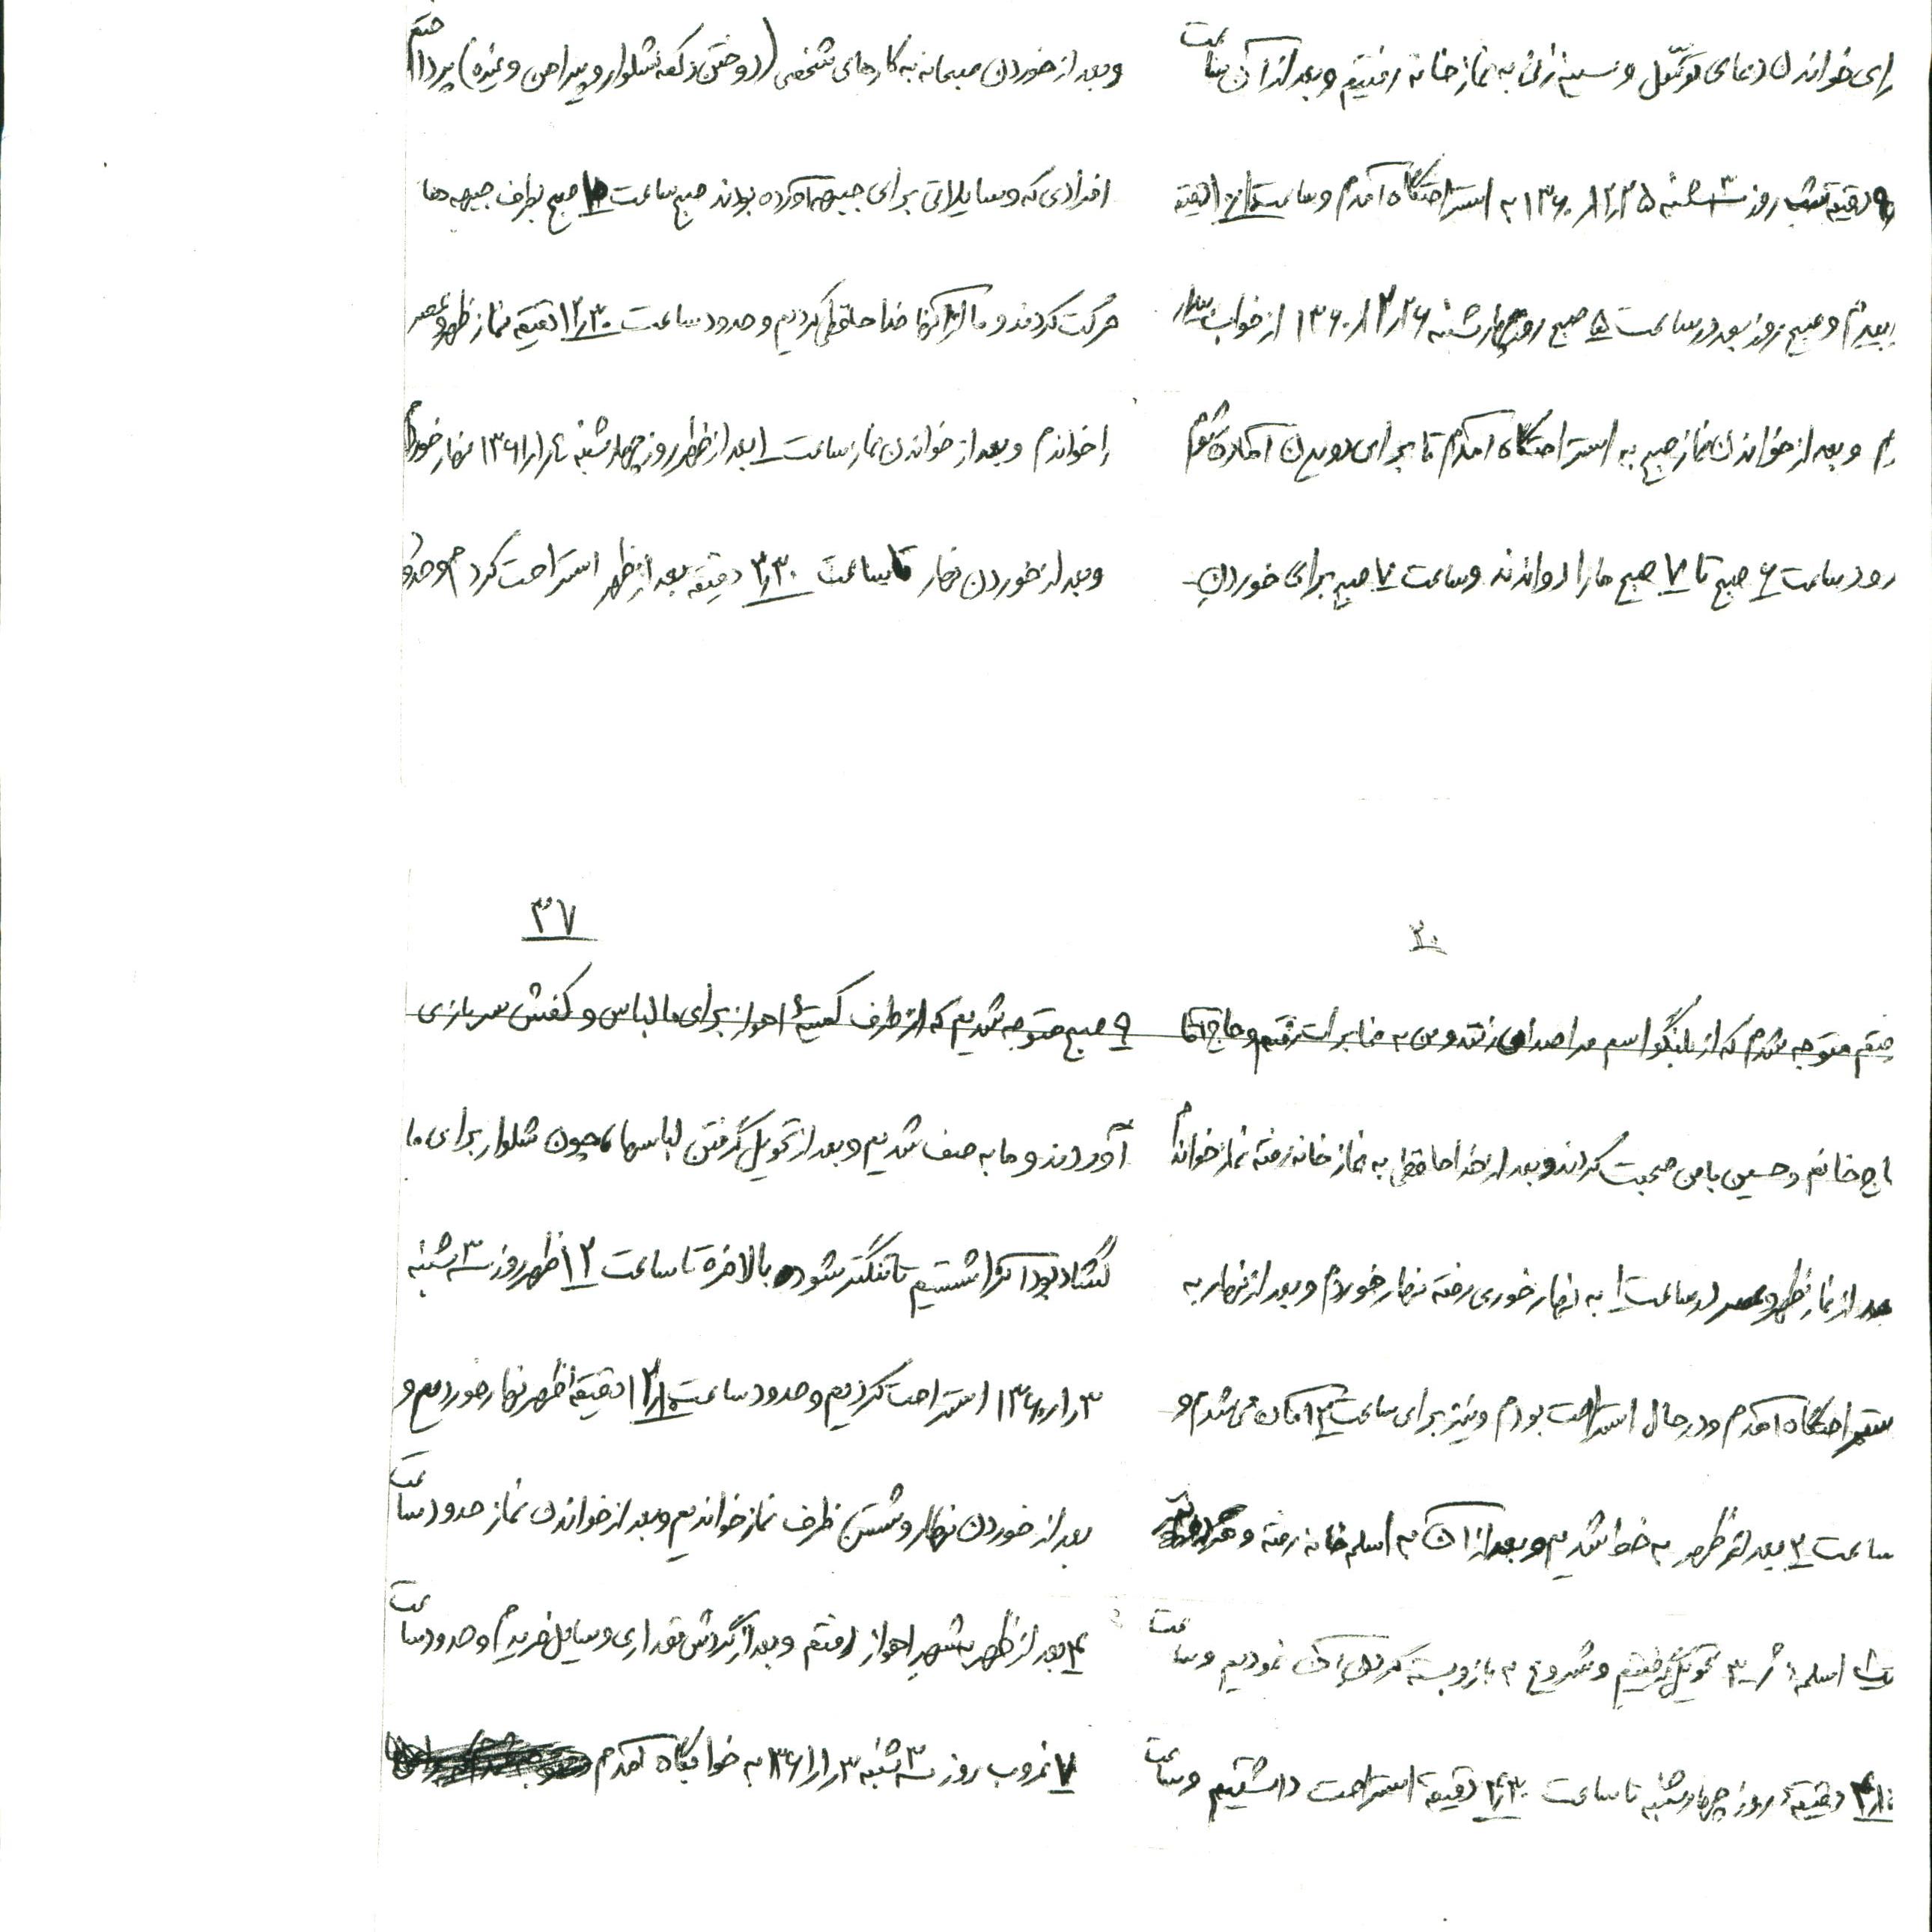 برای خواندن دعای توسّل و سینه زنی به نمازخانه رفتیم و بعد از آن ساعت
دقیقه شب روز ۳شنبه ۱۳۶۰/۱۲/۲۵ به استراحتگاه آمدم و ساعت دقیقه
و صبح روز بعد در ساعت ۵ صبح روز چهارشنبه ۱۳۶۰/۱۲/۲۶ از خواب بیدار
م و بعد از خواندن نماز صبح به استراحتگاه آمدم تا برای دویدن آماده شوم
رود ساعت ۶ صبح تا ۷ صبح ما را دواندند و ساعت ۷ صبح برای خوردن
۳۰
متوجه شدم که از بلندگو اسم مرا صدا می زنند و من به مخابرات رفتم و حاج آقا
اج خانم و حسین با من صحبت کردند و بعد از خداحافظی به نمازخانه رفته نماز خواندم
بعد از نماز ظهر و عصر در ساعت ۱ به نهارخوری رفته نهار خوردم و بعد از نهار به
ستراحتگاه آمدم و در حال استراحت بودم و نیز برای ساعت ۲ آماده می شدم و
ساعت ۲ بعد از ظهر به خط شدیم و بعد از آن به اسلحه خانه رفته و هر نفر
یک اسلحه ژ-۳ تحویل گرفتیم و شروع به باز و بسته کردن آن نمودیم و ساعت
دقیقه روز چهارشنبه تا ساعت ۴/۳۰ دقیقه استراحت داشتیم و ساعت
و بعد از خوردن صبحانه به کارهای شخصی (دوختن دکمه شلوار و پیراهن و غیره) پرداختم
افرادی که وسایلاتی برای جبهه آورده بودند صبح ساعت صبح بطرف جبهه ها
حرکت کردند و ما از آنها خداحافظی کردیم و حدود ساعت ۱۲/۳۰ دقیقه نماز ظهر و عصر
را خواندم و بعد از خواندن نماز ساعت ۱ بعد از ظهر روز چهارشنبه ۱۳۶۱/۱/۴ نهار خوردم
و بعد از خوردن نهار تا ساعت ۳/۳۰ دقیقه بعد از ظهر استراحت کردم و حدود
۳۷
۹ صبح متوجه شدیم که از طرف کمیتهٔ اهواز برای ما لباس و کفش سربازی
آوردند و ما به صف شدیم و بعد از تحویل گرفتن لباسها چون شلوار برای ما
گشاد بود آنرا شستیم تا تنگتر شود و بالاخره تا ساعت ۱۲ ظهر روز ۳شنبه
۱۳۶۰/۱/۳ استراحت کردیم و حدود ساعت ۱۲/۱۰ دقیقه ظهر نهار خوردیم و
بعد از خوردن نهار و شستن ظرف نماز خواندیم و بعد از خواندن نماز حدود ساعت
۴ بعد از ظهر به شهر اهواز رفتم و بعد از گردش مقداری وسایل خریدم و حدود ساعت
۷ غروب روز ۳شنبه ۱۳۶۱/۱/۳ به خوابگاه آمدم